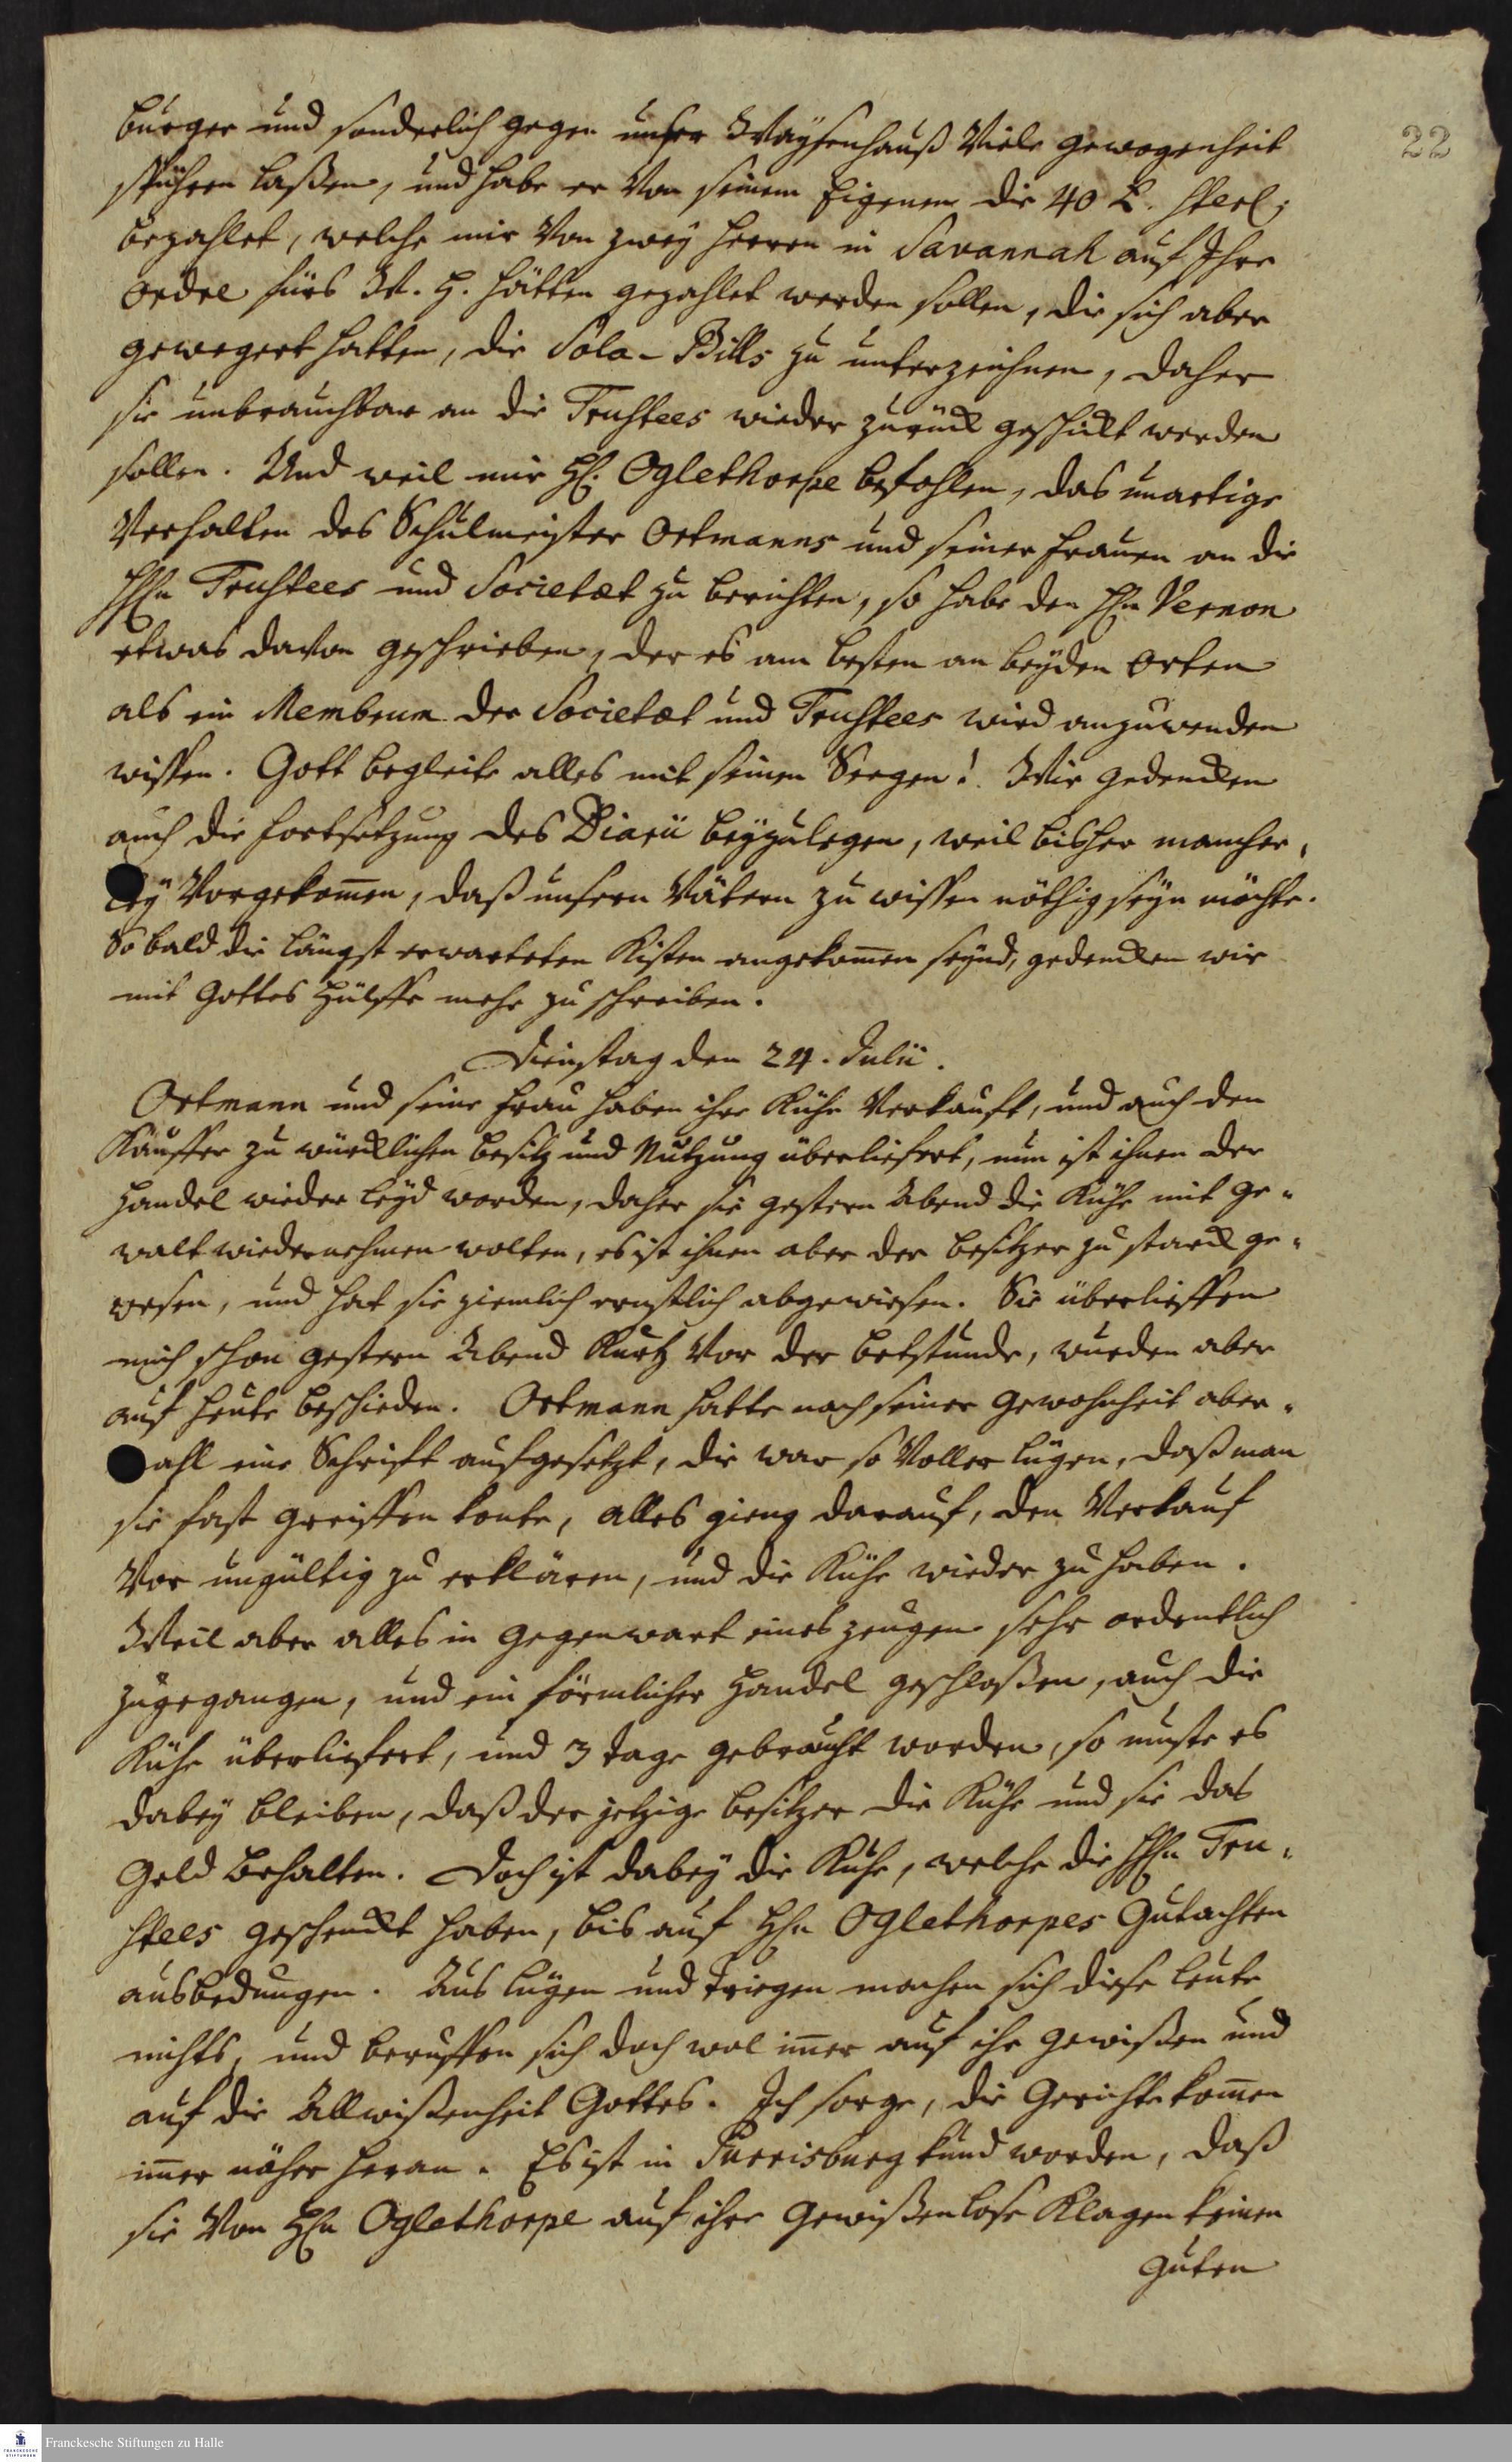 22
burger und sonderlich gegen unser Waysenhauß Viele gewogenheit
spühren laßen, und habe er Von seinem Eigenen die 40 £. sterl.
bezahlet, welche mir Von zwey Herren in Savannah auf Ihre
Ordre fürs W. H. hätten gezahlet werden sollen, die sich aber
gewegert hatten, die Sola-Bills zu unterzeichnen, daher
sie unbrauchbar an die Trustees wieder zurück geschickt werden
sollen. Und weil mir H. Oglethorpe befohlen, das unartige
Verhalten des Schulmeister Ortmanns und seiner Frauen an die
HHn Trustees und Societæt zu berichten, so habe den Hn Vernon
etwas davon geschrieben, der es am besten an beyden Orten
als ein Membrum der Societæt und Trustees wird anzuwenden
wissen. Gott begleite alles mit seinen Seegen! Wir gedencken
auch die Fortsetzung des Diarii beyzulegen, weil bisher mancher-
ley Vorgekom̄en, daß unsern Vätern zu wissen nöthig seyn möchte.
So bald die längst erwarteten Kisten angekom̄en seynd, gedencken wir
mit Gottes Hülffe mehr zu schreiben.
Dienstag den 24. Julii.
Ortmann und seine Frau haben ihre Kühe Verkauft, und auch den
Käuffer zu würcklichen Besitz und Nutzung überliefert, nun ist ihnen der
Handel wieder leyd worden, daher sie gestern Abend die Kühe mit Ge-
walt wiedernehmen wolten, es ist ihnen aber der Besitzer zu starck ge-
wesen, und hat sie ziemlich ernstlich abgewiesen. Sie überlieffen
mich schon gestern Abend kurtz Vor der Betstunde, wurden aber
auf heute beschieden. Ortmann hatte nach seiner Gewohnheit aber-
mahl eine Schrift aufgesetzt, die war so Voller Lügen, daß man
sie fast greiffen konte, alles gieng darauf, den Verkauf
Vor ungültig zu erklären, und die Kühe wieder zu haben.
Weil aber alles in Gegenwart eines Zeugen sehr ordentlich
zugegangen, und ein förmlicher Handel geschloßen, auch die
Kühe überliefert, und 3 Tage gebraucht worden, so muste es
dabey bleiben, daß der jetzige Besitzer die Kühe und sie das
Geld behalten. Doch ist dabey die Kuhe, welche die HHn Tru-
stees geschenckt haben, bis auf Hn Oglethorpes Gutachten
ausbedungen. Aus Lügen und Triegen machen sich diese Leute
nichts, und beruffen sich doch wol im̄er auf ihr Gewißen und
auf die Allwißenheit Gottes. Ich sorge, die Gerichte kom̄en
im̄er näher heran. Es ist in Purrisburg kund worden, daß
sie Von Hn Oglethorpe auf ihre Gewißenlose Klagen keinen
Guten
FRANCKESCHE STIFTUNGEN
Franckesche Stiftungen zu Halle